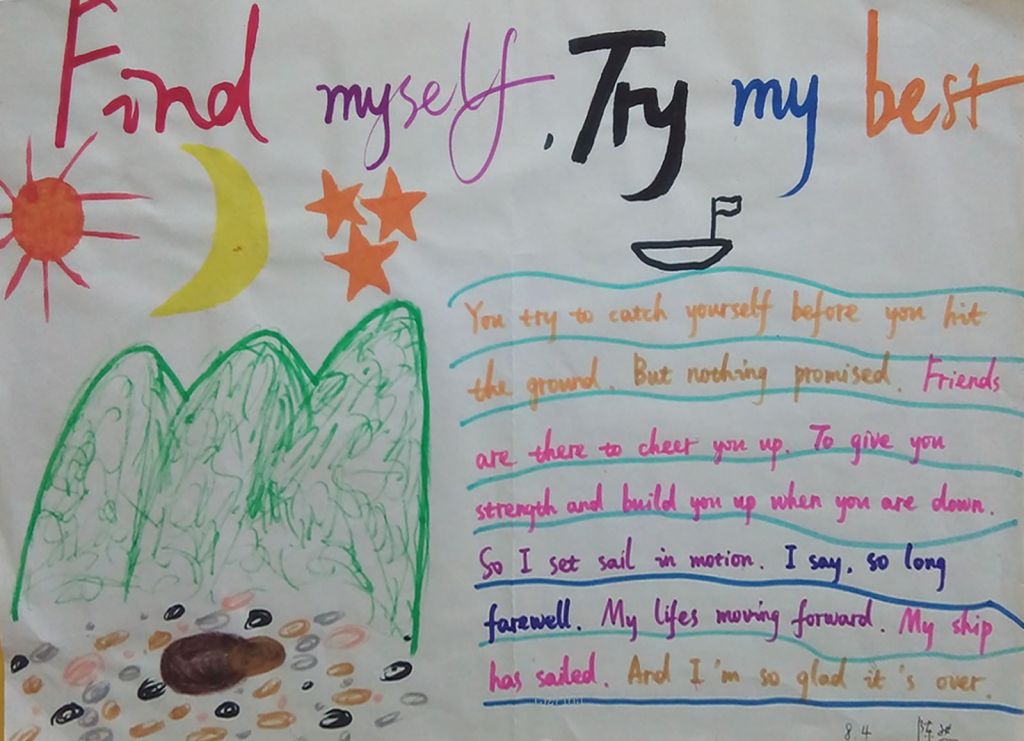 Find myself, Try my best
You try to catch yourself before you hit
the ground. But nothing promised. Friends
are there to cheer you up. To give you
strength and build you up when you are down.
So I set sail in motion. I say, so long
farewell. My lifes moving forward. My ship
has sailed. And I'm so glad it's over.
8.4